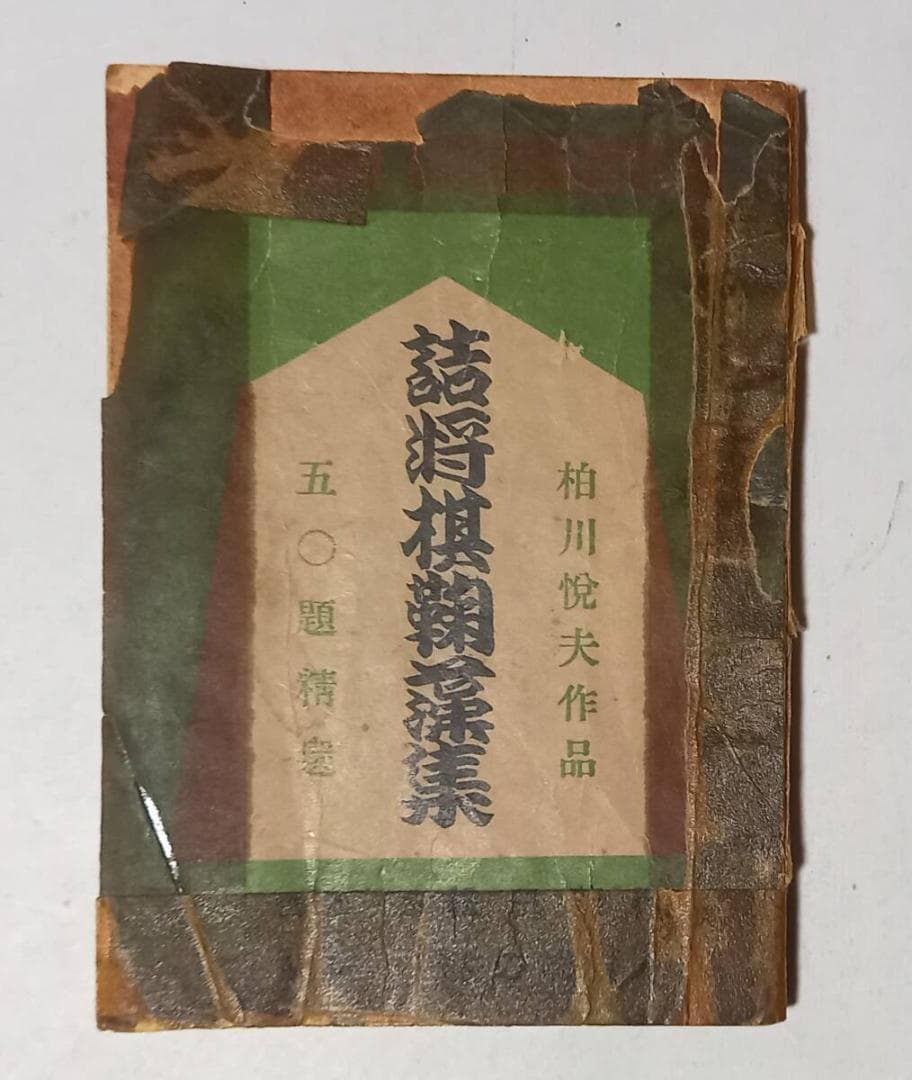 柏川悅夫作品
詰将棋鞠藻集
五〇題精選